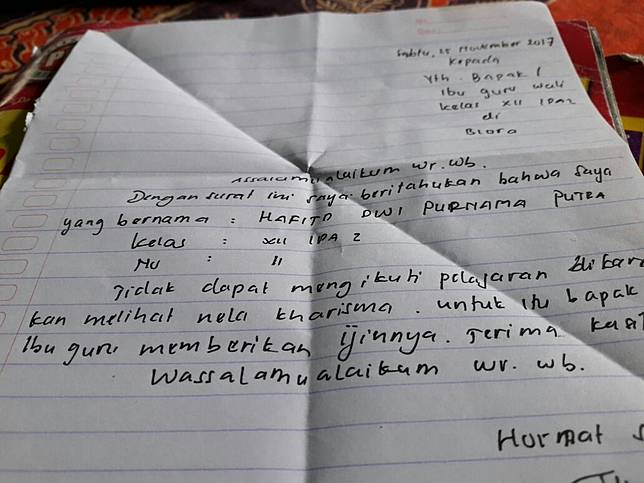 Sabtu, 25 November 2017
Kepada
Yth. Bapak /
Ibu guru wali
kelas XII IPA2
di
Blora
Assalamualaikum wr. wb.
Dengan surat ini saya beritahukan bahwa saya
yang bernama : HAFITD DWI PURNAMA PUTRA
kelas : XII IPA 2
No : 11
Tidak dapat mengikuti pelajaran dikare
kan melihat nela kharisma. untuk itu bapak
Ibu guru memberikan ijinnya. Terima kasi
Wassalamualaikum wr. wb.
Hormat s